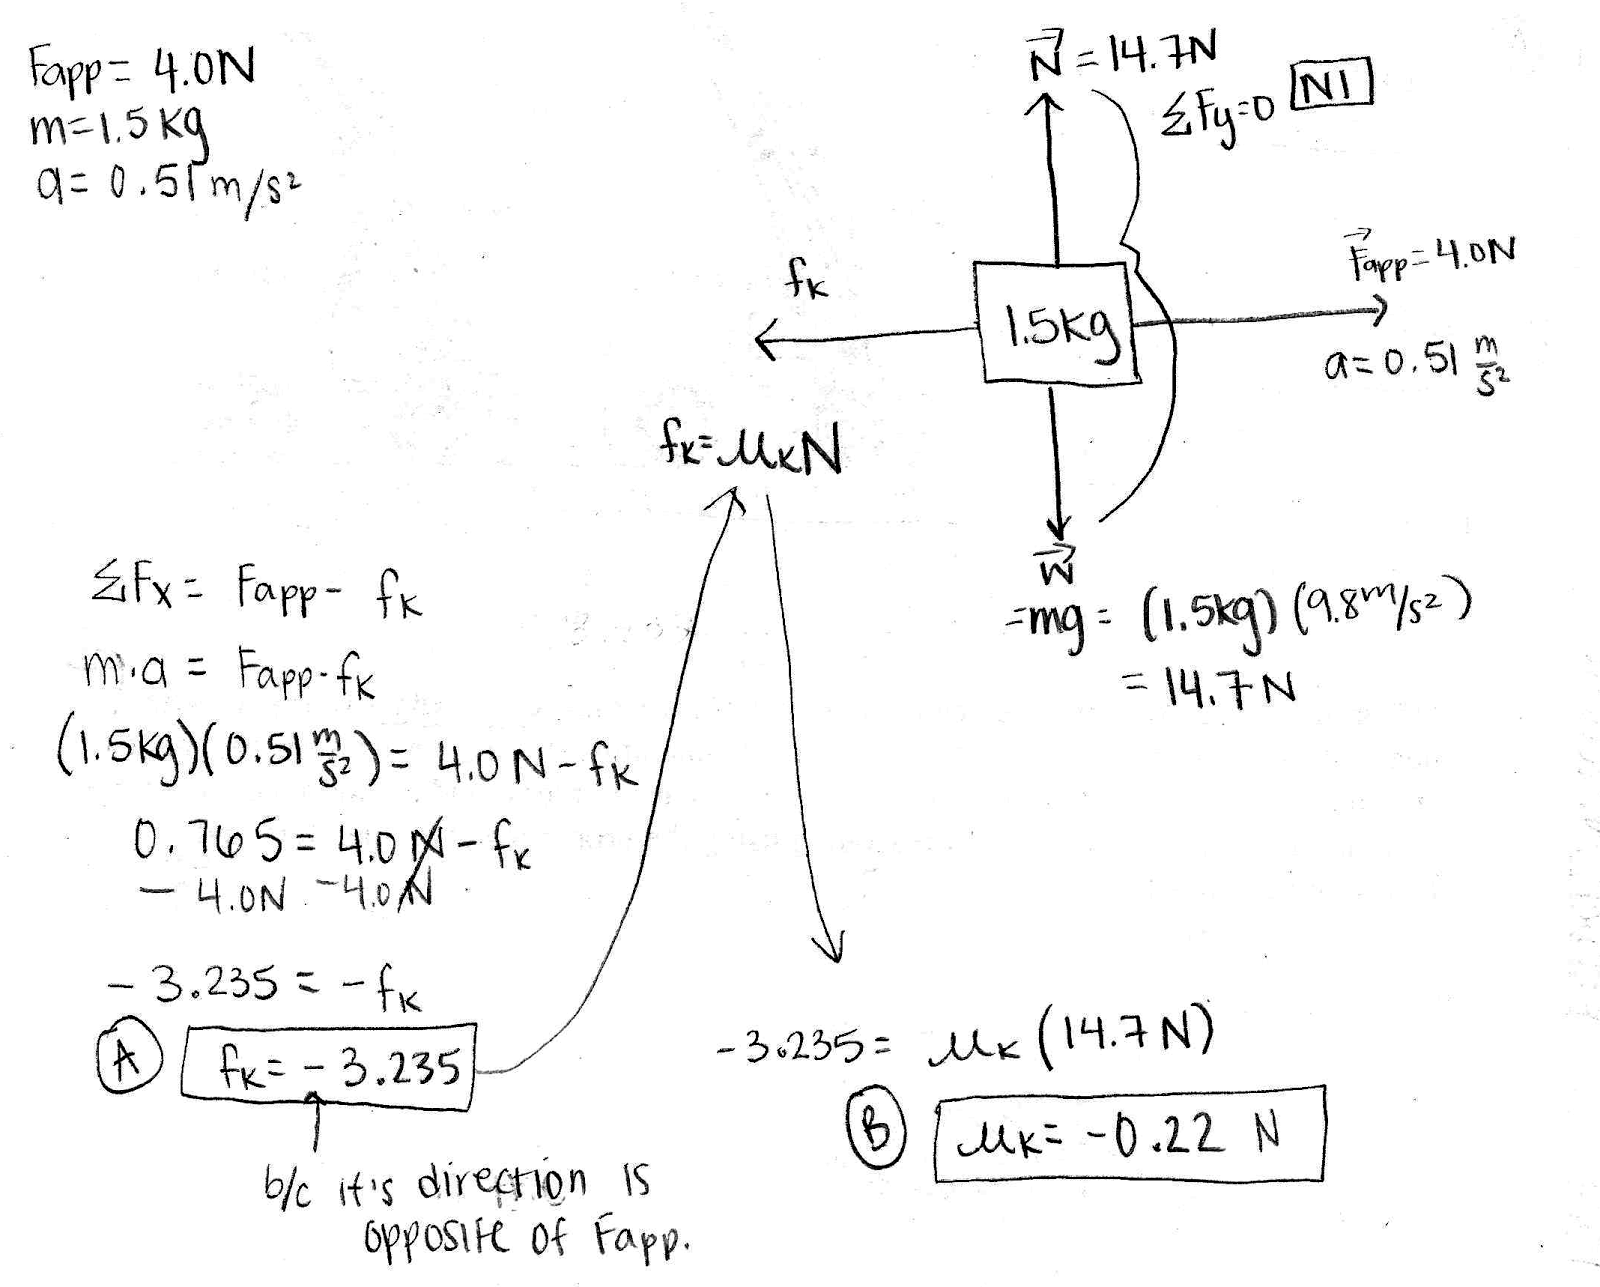 Fapp = 4.0N
m=1.5 kg
a= 0.51 m/s²
N⃗ = 14.7N
ΣFy=0 N1
fk
1.5kg
F⃗app=4.0N
a=0.51 m/s²
fk=μkN
W⃗
=mg= (1.5kg)(9.8m/s²)
= 14.7N
ΣFx = Fapp - fk
m·a = Fapp-fk
(1.5kg)(0.51 m/s²)= 4.0 N - fk
0.765 = 4.0 N - fk
- 4.0N -4.0 N
- 3.235 = - fk
A fk= - 3.235
b/c it's direction is
opposite of Fapp.
-3.235= μk (14.7 N)
B μk= -0.22 N